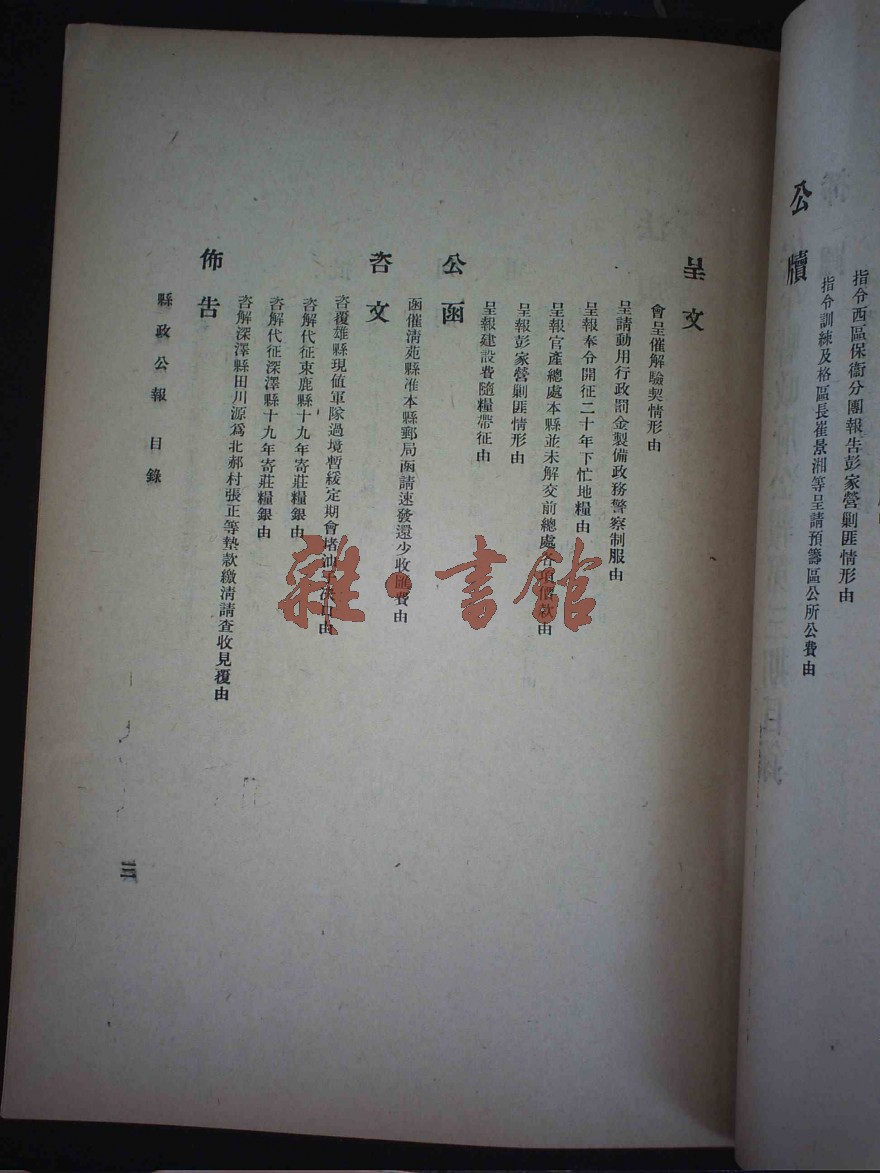 公牘
指令西區保衞分團報告彭家營剿匪情形由
指令訓練及格區長崔景湘等呈請預籌區公所公費由
呈文
會呈催解驗契情形由
呈請動用行政罰金製備政務警察制服由
呈報奉令開征二十年下忙地糧由
呈報官產總處本縣並未解交前總處各項價款由
呈報彭家營剿匪情形由
呈報建設費隨糧帶征由
公函
函催清苑縣准本縣郵局函請速發還少收匯費由
咨文
咨覆雄縣現値軍隊過境暫緩定期會堵油子決口由
咨解代征束鹿縣十九年寄莊糧銀由
咨解代征深澤縣十九年寄莊糧銀由
咨解深澤縣田川源爲北郝村張正等墊款繳清請查收見覆由
佈告
縣政公報 目錄
三
雜·書館